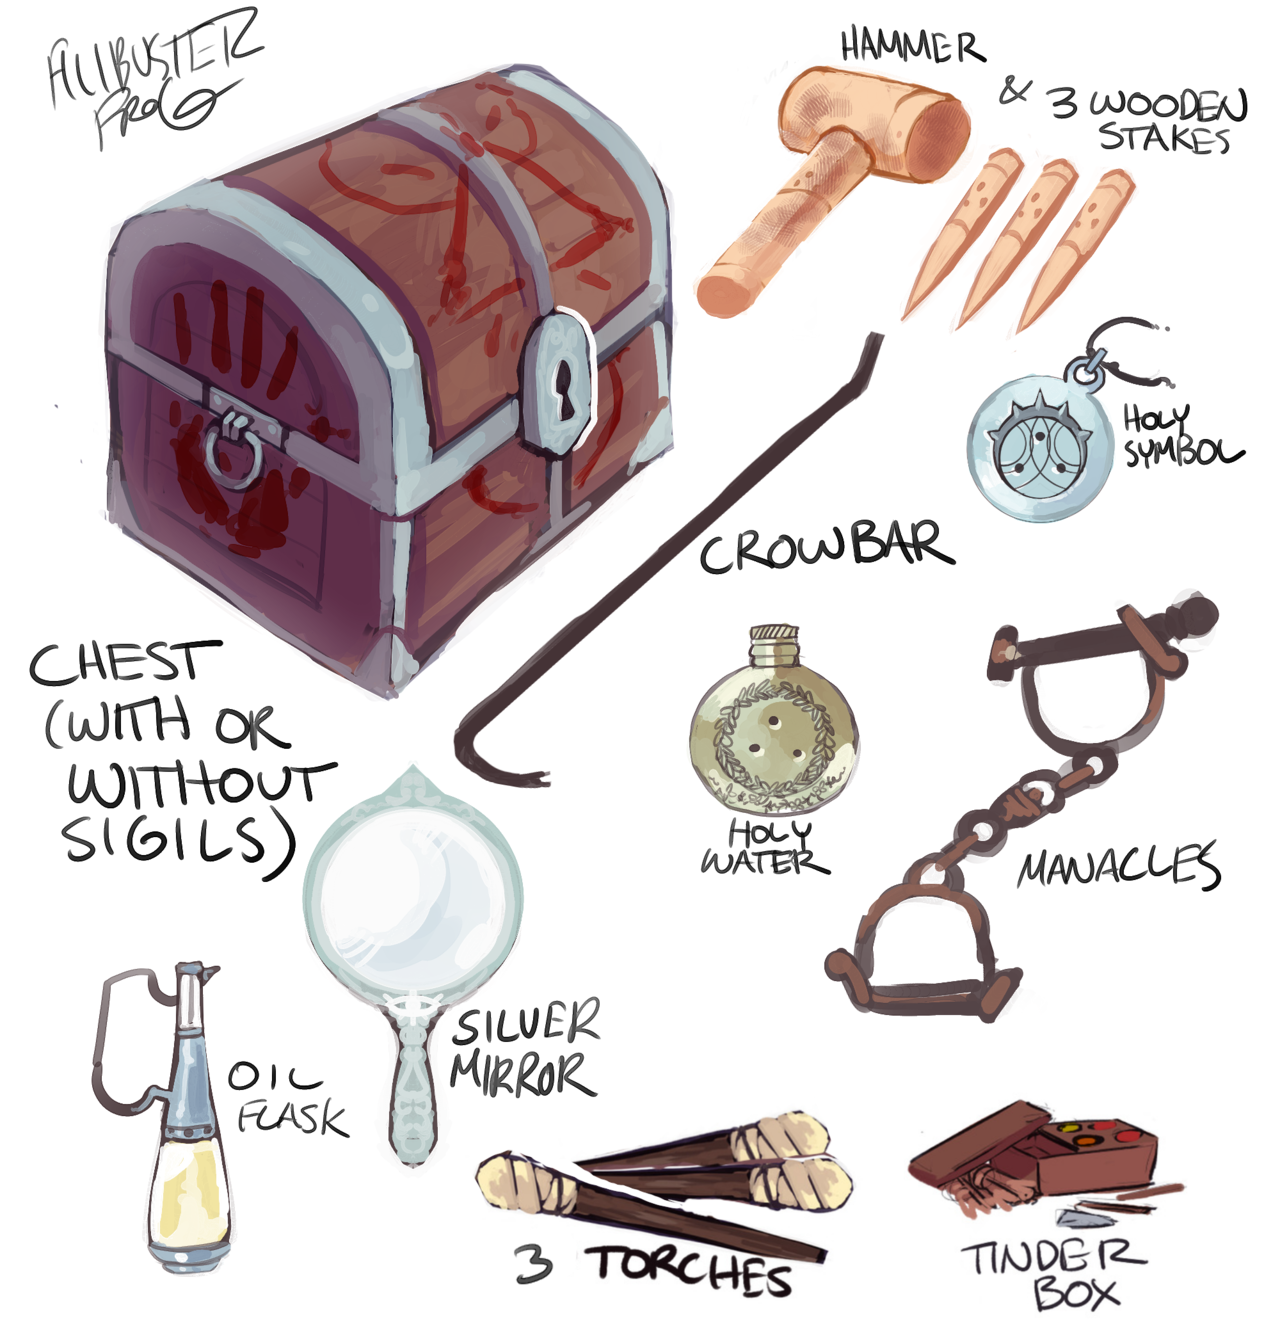 FILIBUSTER
FROG
HAMMER
& 3 WOODEN
STAKES
HOLY
SYMBOL
CROWBAR
CHEST
(WITH OR
WITHOUT
SIGILS)
HOLY
WATER
MANACLES
SILVER
MIRROR
OIL
FLASK
3 TORCHES
TINDER
BOX